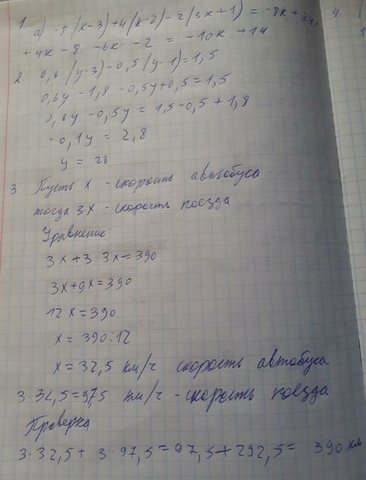 1. а) -8(x-3)+4(x-2)-2(3x+1) = -8x+24
+4x - 8 - 6x - 2 = -10x + 14
2. 0,6(y-3)-0,5(y-1)=1,5
0,6y - 1,8 - 0,5y+0,5=1,5
0,6y - 0,5y = 1,5-0,5+1,8
-0,1y = 2,8
y = 28
3 Пусть x - скорость автобуса
тогда 3x - скорость поезда
Уравнение:
3x+3·3x=390
3x+9x=390
12x=390
x = 390:12
x = 32,5 км/ч скорость автобуса
3·32,5=97,5 км/ч - скорость поезда
Проверка
3·32,5+ 3·97,5=97,5+292,5= 390 км
4.